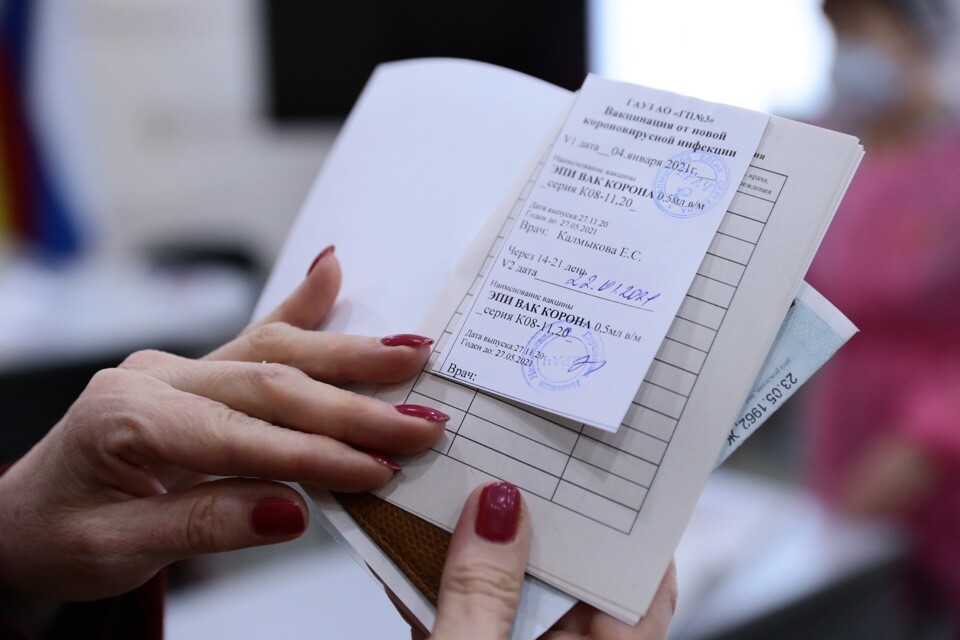 ГАУЗ АО «ГП№3»
Вакцинация от новой
короновирусной инфекции
V1 дата__04.января 2021г.
Наименование вакцины
ЭПИ ВАК КОРОНА 0,5мл в/м
_серия К08-11,20_
Дата выпуска:27.11.20
Годен до: 27.05.2021
Врач: Калмыкова Е.С.
Через 14-21 день
V2 дата 22.01.2021
Наименование вакцины
ЭПИ ВАК КОРОНА 0,5мл в/м
_серия К08-11,20_
Дата выпуска:27.11.20
Годен до: 27.05.2021
Врач:
врача,
23.05.1962, Ж